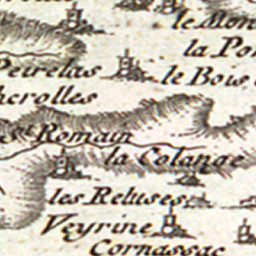 le Mon
la Po
Peirelas
le Bois
cherolles
St Romain
la Colange
les Reluses
Veyrine
Cornassac